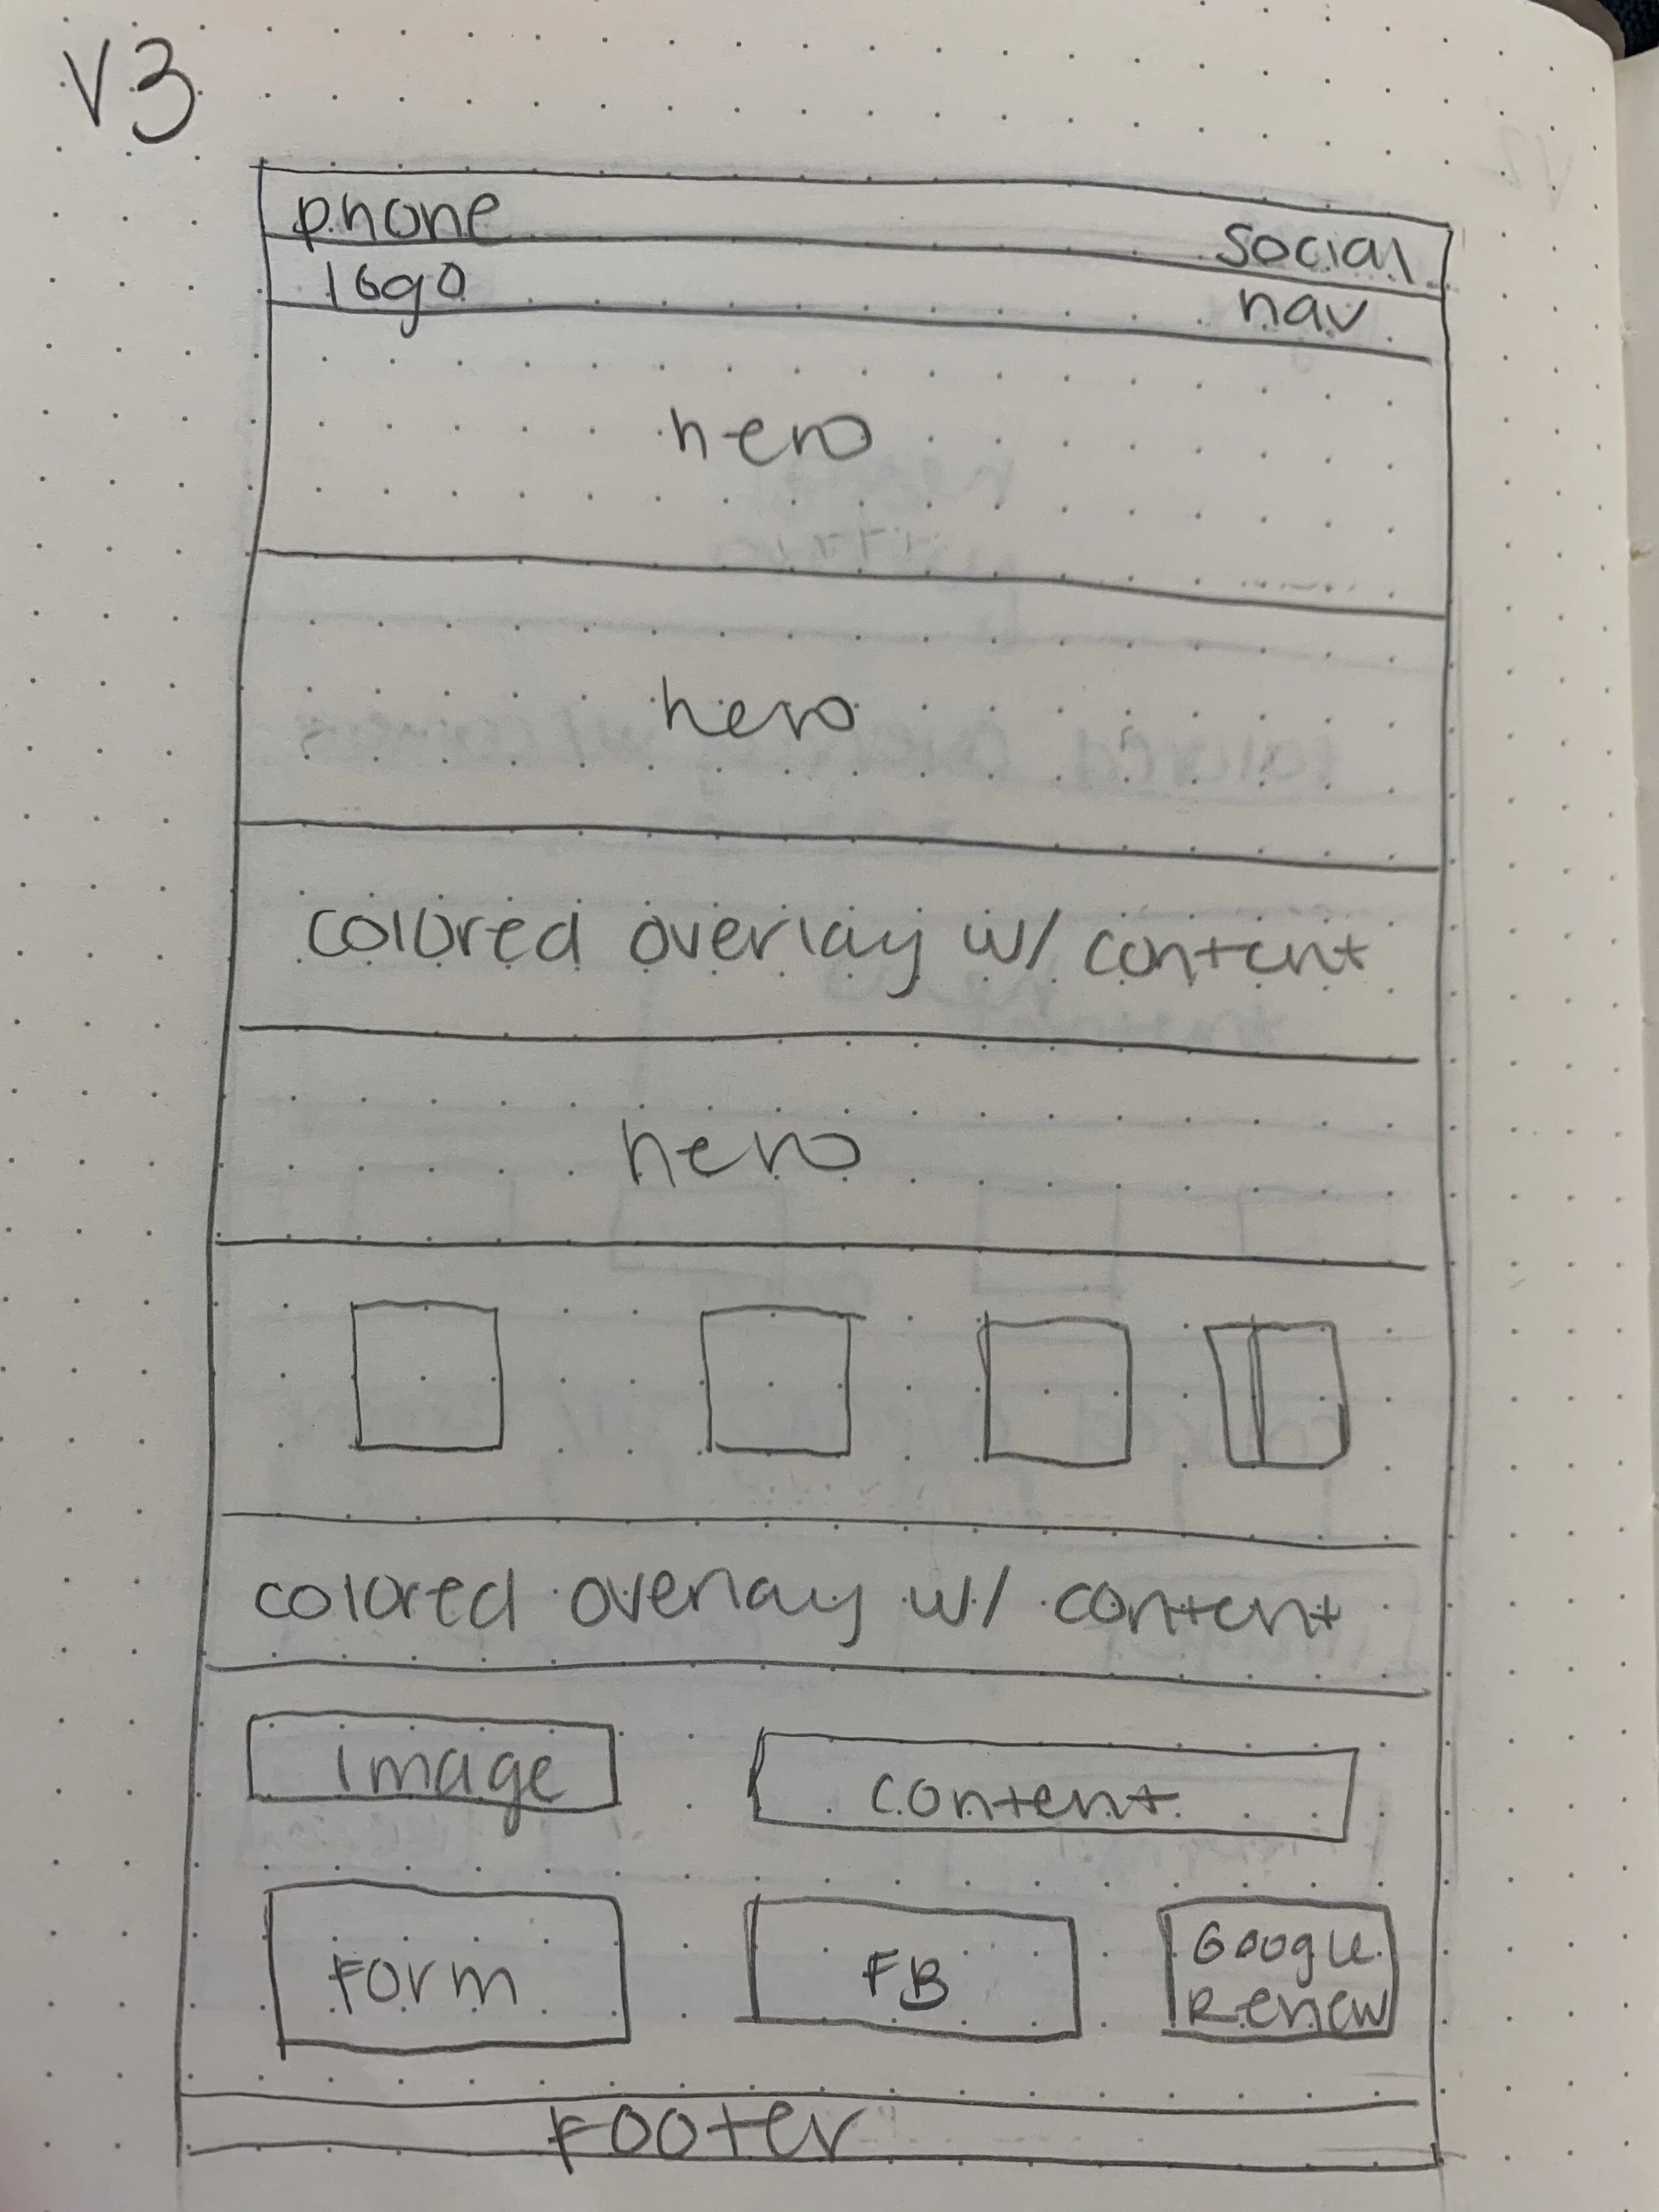 V3
phone social
logo nav
hero
hero
colored overlay w/ content
hero
colored overlay w/ content
image content
Form FB Google Review
Footer